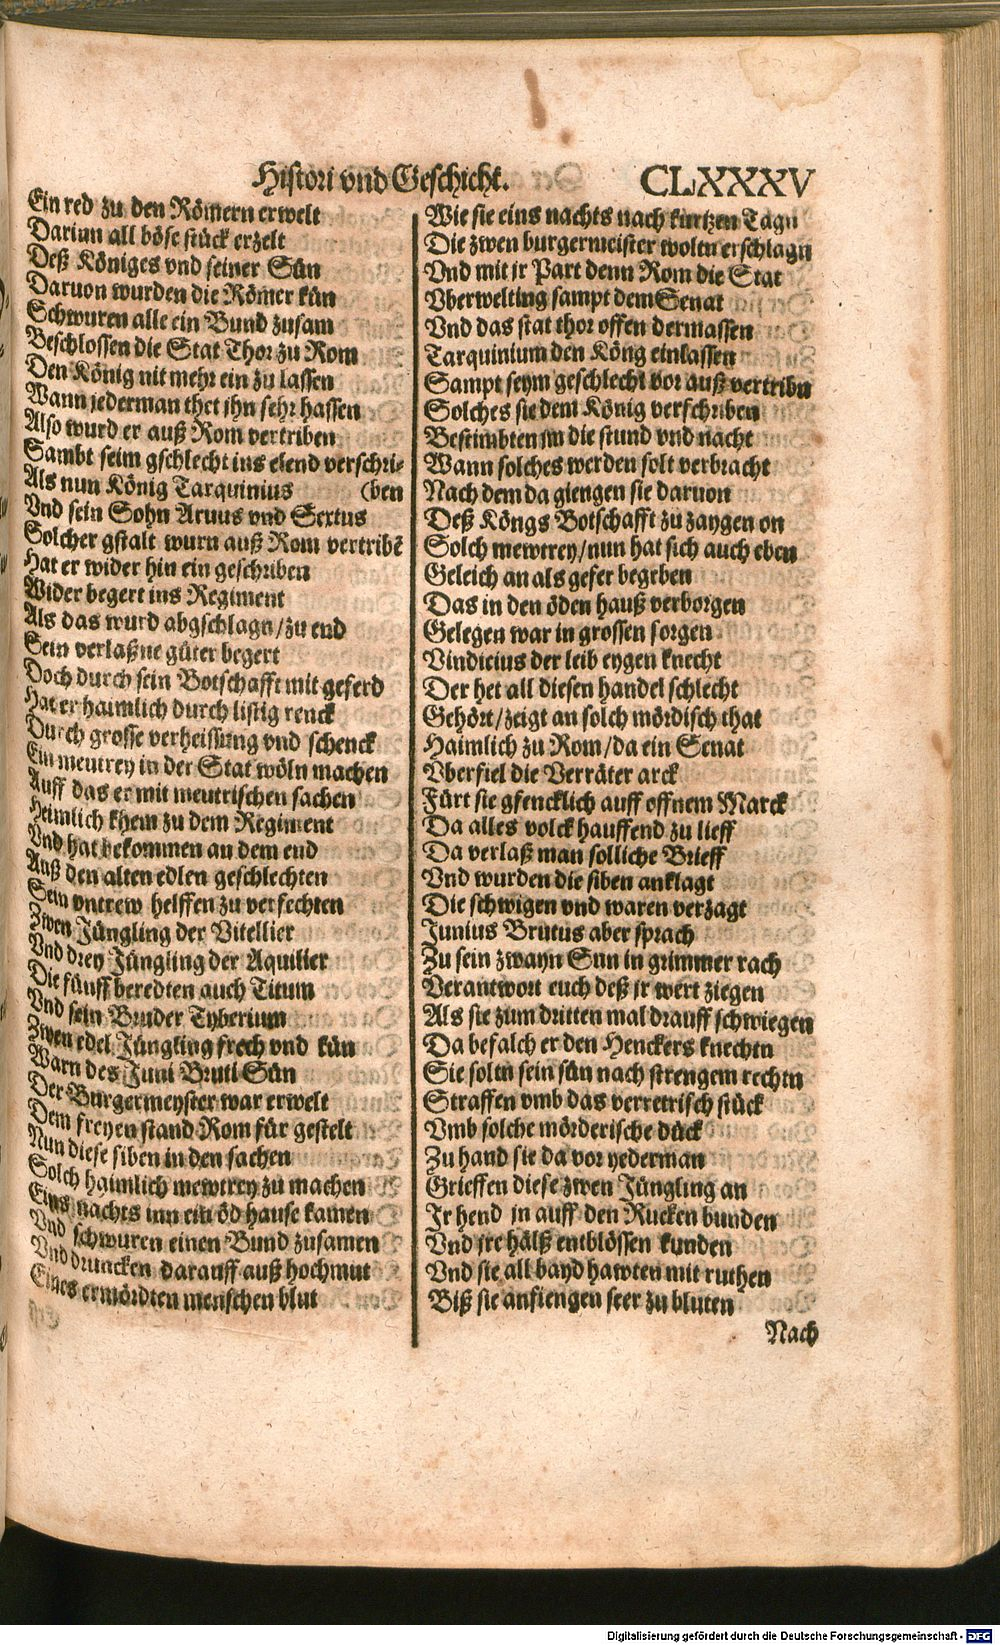 Histori vnd Geschicht.
CLXXXV
Ein red zu den Römern erwelt
Dariun all böse stück erzelt
Deß Königes vnd seiner Sün
Daruon wurden die Römer kün
Schwuren alle ein Bund zusam
Beschlossen die Stat Thor zu Rom
Den König nit mehr ein zu lassen
Wann jederman thet ihn sehr hassen
Also wurd er auß Rom vertriben
Sambt seim gschlecht ins elend verschri-
Als nun König Tarquinius (ben
Vnd sein Sohn Aruus vnd Sextus
Solcher gstalt wurn auß Rom vertribē
Hat er wider hin ein geschriben
Wider begert ins Regiment
Als das wurd abgschlagn/zu end
Sein verlaßne güter begert
Doch durch sein Botschafft mit geferd
Hat er haimlich durch listig renck
Durch grosse verheissung vnd schenck
Ein meutrey in der Stat wöln machen
Auff das er mit meutrischen sachen
Heimlich khem zu dem Regiment
Vnd hat bekommen an dem end
Auß den alten edlen geschlechten
Sein vntrew helffen zu verfechten
Zwen Jüngling der Vitellier
Vnd drey Jüngling der Aquilier
Die fünff beredten auch Titum
Vnd sein Bruder Tyberium
Zwen edel Jüngling frech vnd kün
Warn des Juni Bruti Sün
Der Burgermeyster war erwelt
Dem freyen stand Rom für gestelt
Nun diese siben in den sachen
Solch haimlich mewtrey zu machen
Eins nachts inn ein öd hause kamen
Vnd schwuren einen Bund zusamen
Vnd druncken darauff auß hochmut
Eines ermördten menschen blut
Wie sie eins nachts nach kurtzen Tagn
Die zwen burgermeister woltn erschlagn
Vnd mit jr Part denn Rom die Stat
Vberwelting sampt dem Senat
Vnd das stat thor offen dermassen
Tarquinium den Köng einlassen
Sampt seym geschlecht vor auß vertribn
Solches sie dem König verschriben
Bestimbten jm die stund vnd nacht
Wann solches werden solt verbracht
Nach dem da giengen sie daruon
Deß Köngs Botschafft zu zaygen on
Solch mewtrey/nun hat sich auch eben
Geleich an als gefer begeben
Das in den öden hauß verborgen
Gelegen war in grossen sorgen
Vindicius der leib eygen knecht
Der het all diesen handel schlecht
Gehört/zeigt an solch mördisch that
Haimlich zu Rom/da ein Senat
Vberfiel die Verräter arck
Fürt sie gfencklich auff offnem Marck
Da alles volck hauffend zu lieff
Da verlaß man solliche Brieff
Vnd wurden die siben anklagt
Die schwigen vnd waren verzagt
Junius Brutus aber sprach
Zu sein zwayn Sün in grimmer rach
Verantwort euch deß jr wert ziegen
Als sie zum dritten mal drauff schwiegen
Da befalch er den Henckers knechtn
Sie soltn sein sün nach strengem rechtn
Straffen vmb das verretrisch stück
Vmb solche mörderische dück
Zu hand sie da vor yederman
Grieffen diese zwen Jüngling an
Jr hend jn auff den Rucken bunden
Vnd jre hälß entblössen kunden
Vnd sie all bayd hawten mit ruthen
Biß sie anfiengen seer zu bluten
Nach
Digitalisierung gefördert durch die Deutsche Forschungsgemeinschaft - DFG